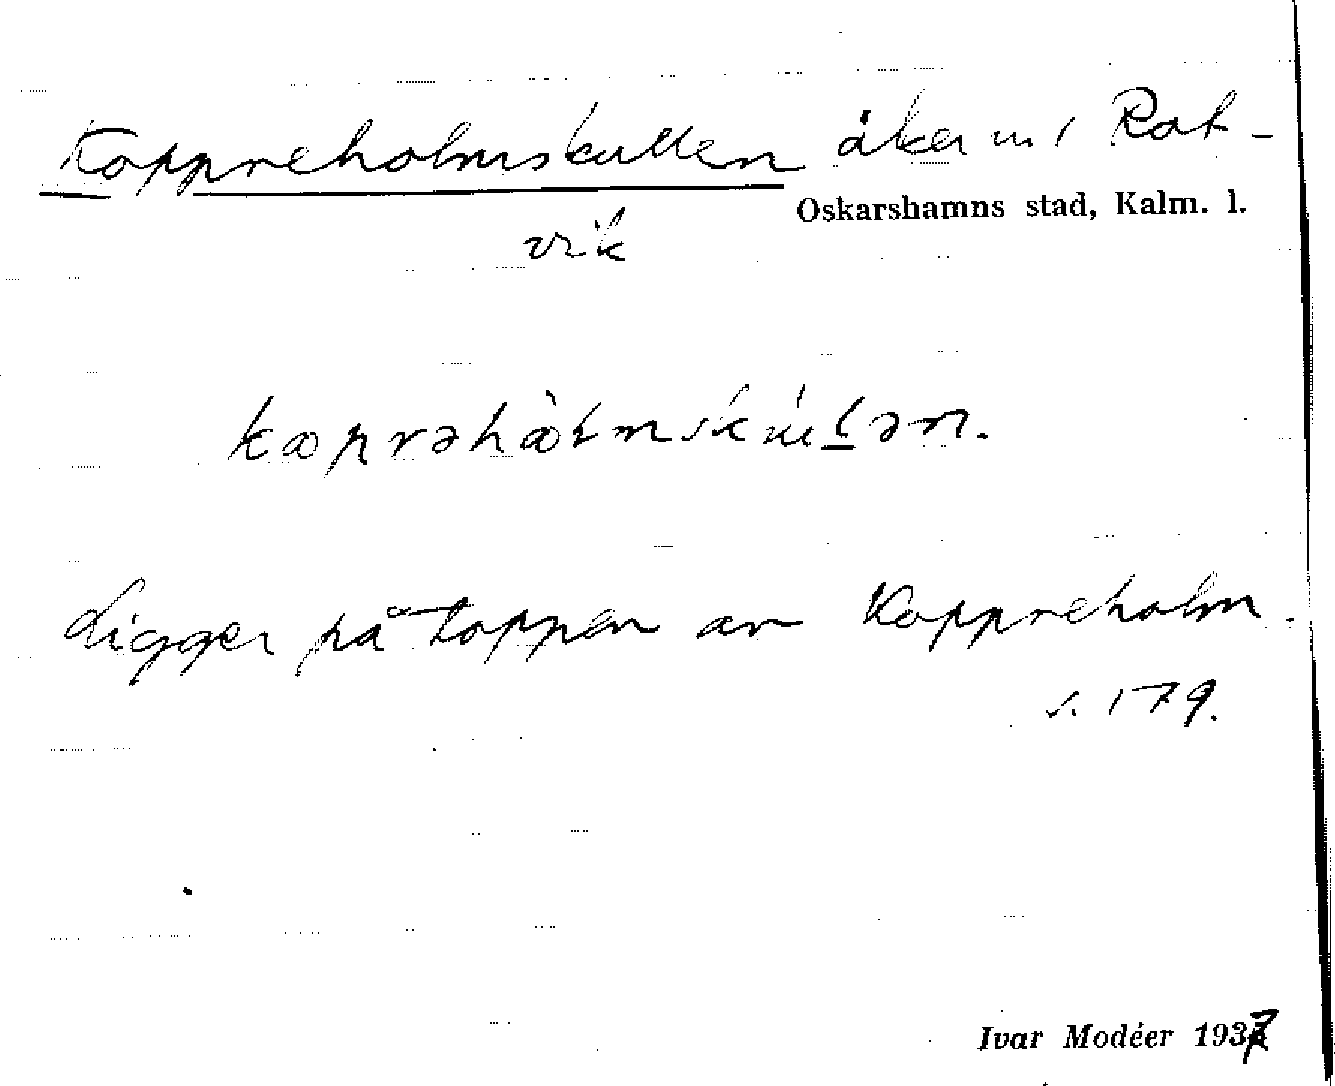 Koppreholmskullen åker m / Rot-
Oskarshamns stad, Kalm. l.
vik
kopreholmskulen.
Ligger på toppen av Koppreholm.
s. 179.
Ivar Modéer 1937